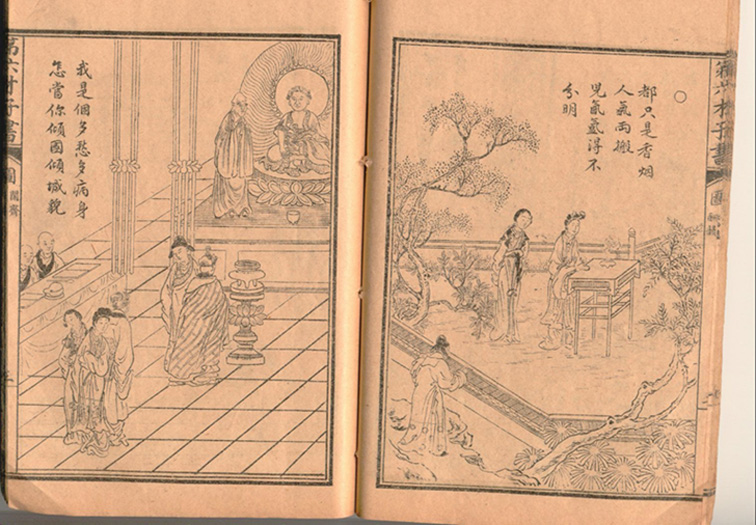 第六才子書
圖
都只是香烟
人氣両搬
兒氤氳得不
分明
我是個多愁多病身
怎當你傾國傾城貌
第六才子書
圖
鬧齋